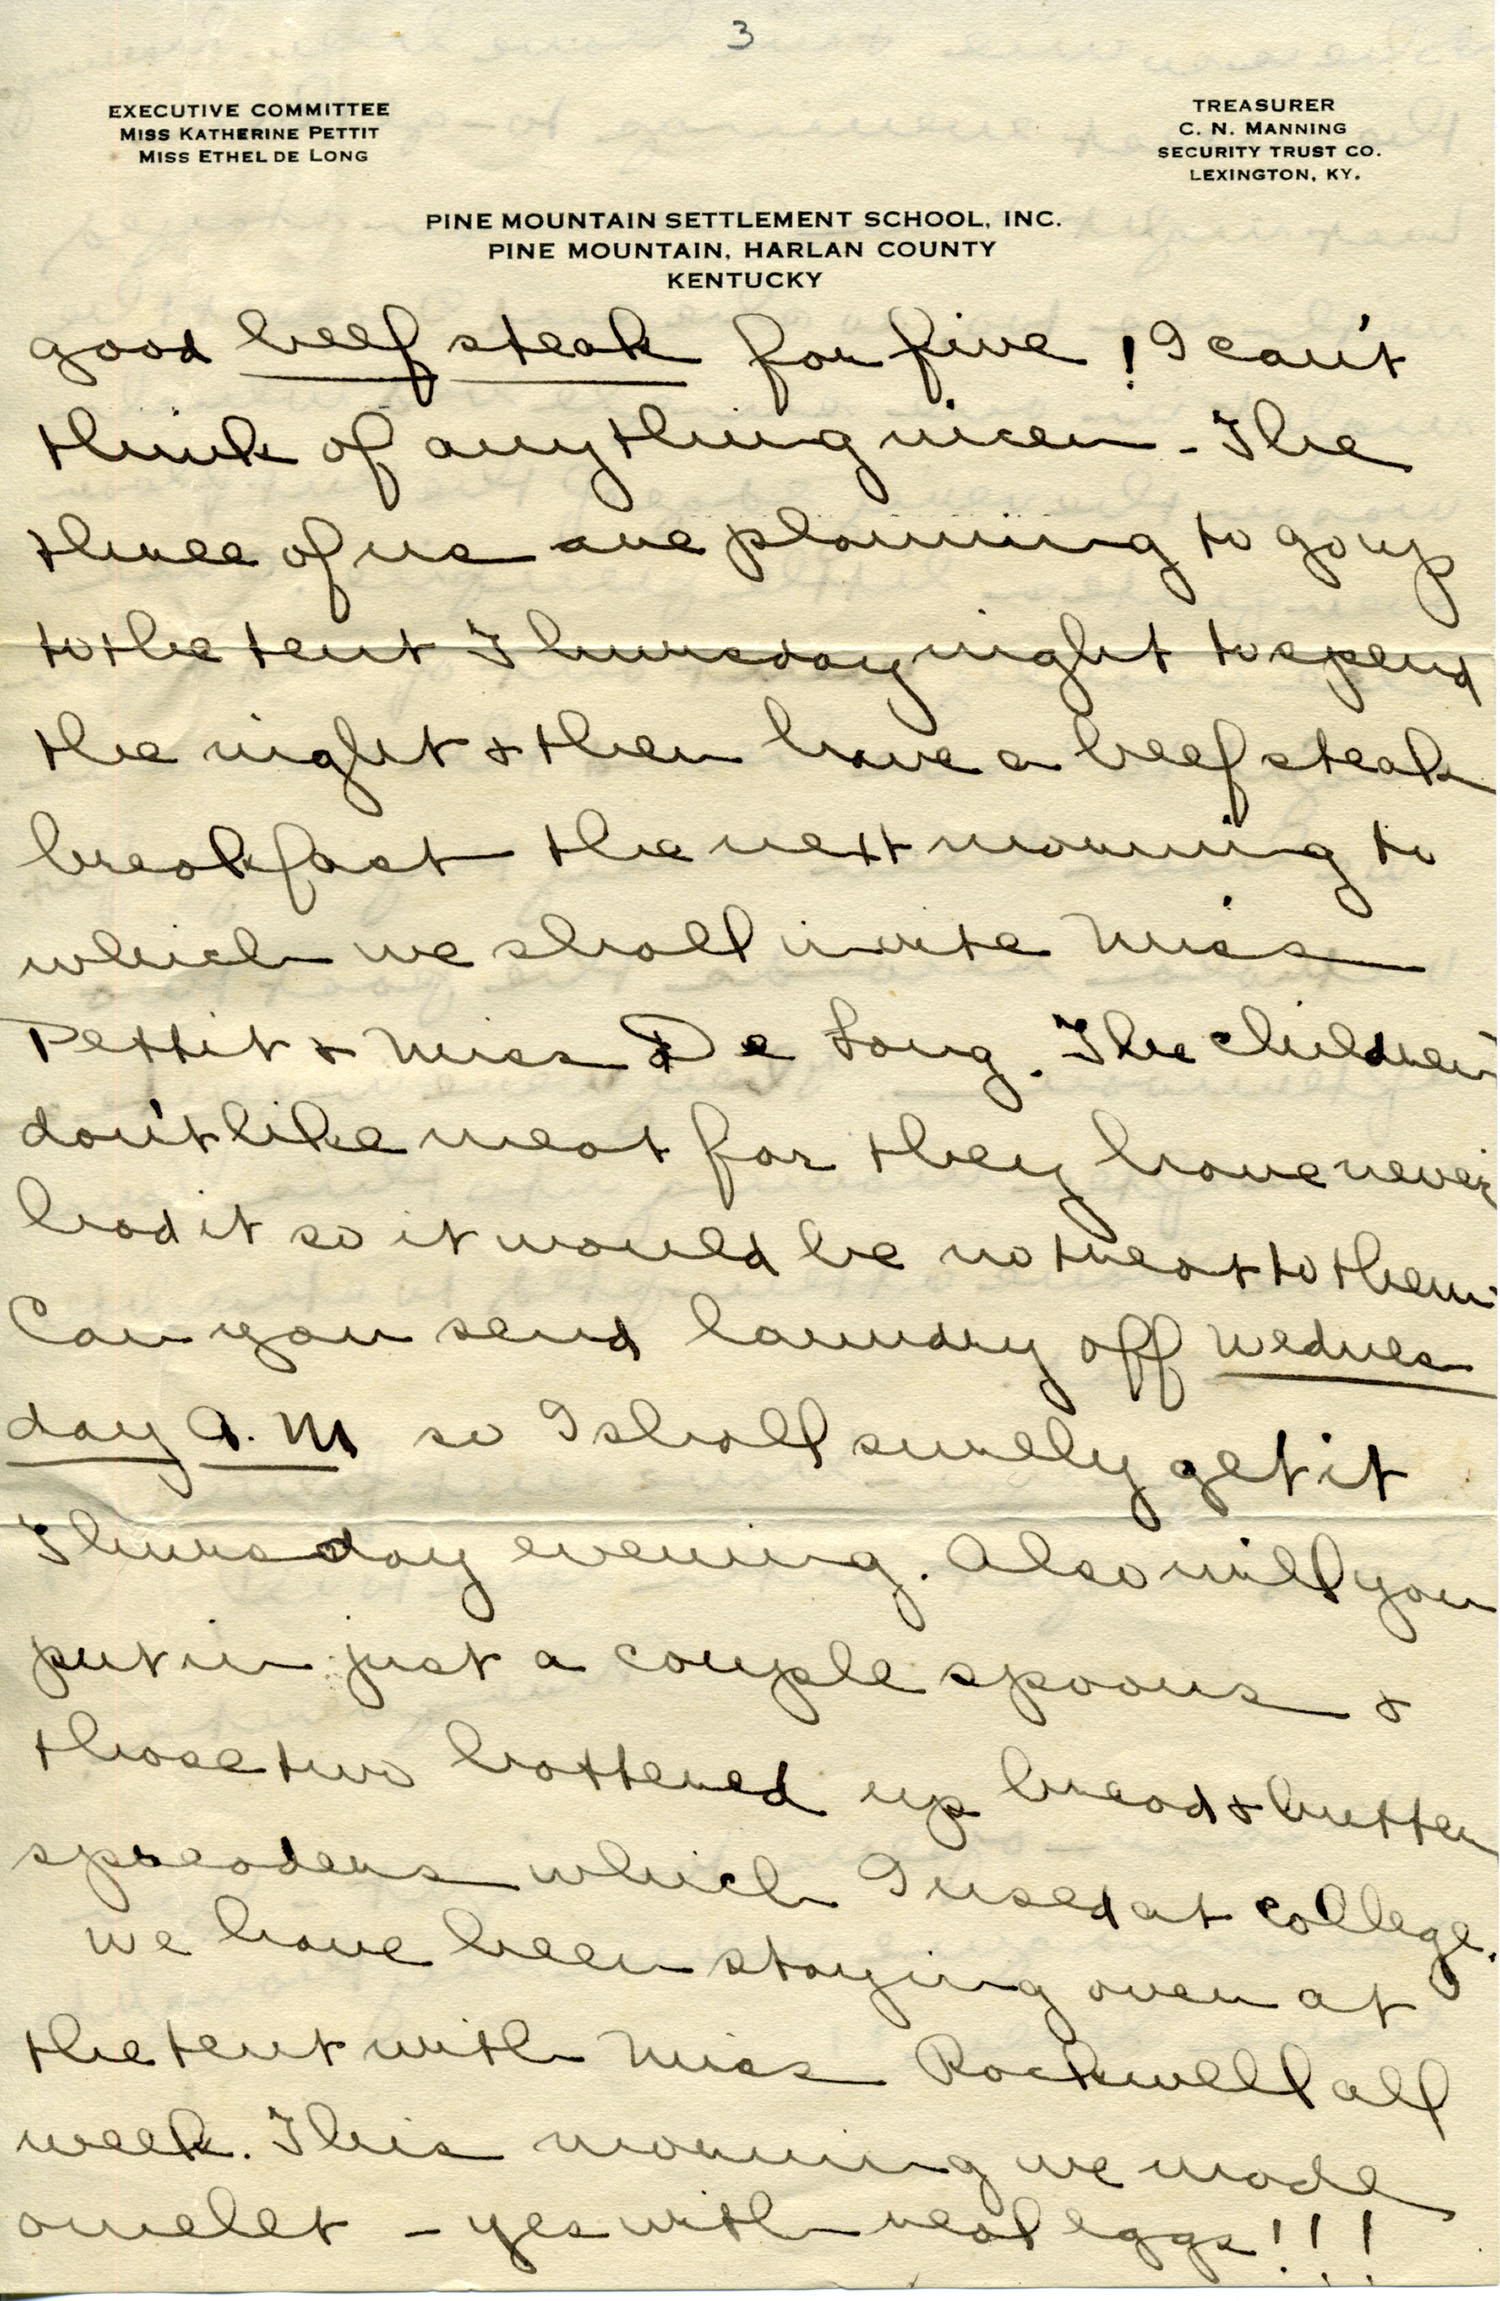 3
EXECUTIVE COMMITTEE
MISS KATHERINE PETTIT
MISS ETHEL DE LONG
TREASURER
C. N. MANNING
SECURITY TRUST CO.
LEXINGTON, KY.
PINE MOUNTAIN SETTLEMENT SCHOOL, INC.
PINE MOUNTAIN, HARLAN COUNTY
KENTUCKY
good beef steak for five! I can't
think of anything nicer - The
three of us are planning to go up
to the tent Thursday night to spend
the night & then have a beef steak
breakfast the next morning to
which we shall invite Miss
Pettit & Miss De Long. The children
don't like meat for they have never
had it so it would be no treat to them.
Can you send laundry off Wednes
day A.M so I shall surely get it
Thursday evening. Also will you
put in just a couple spoons &
those two battered up bread & butter
spreaders which I used at college.
We have been staying over at
the tent with Miss Rockwell all
week. This morning we made
omelet - yes with real eggs!!!